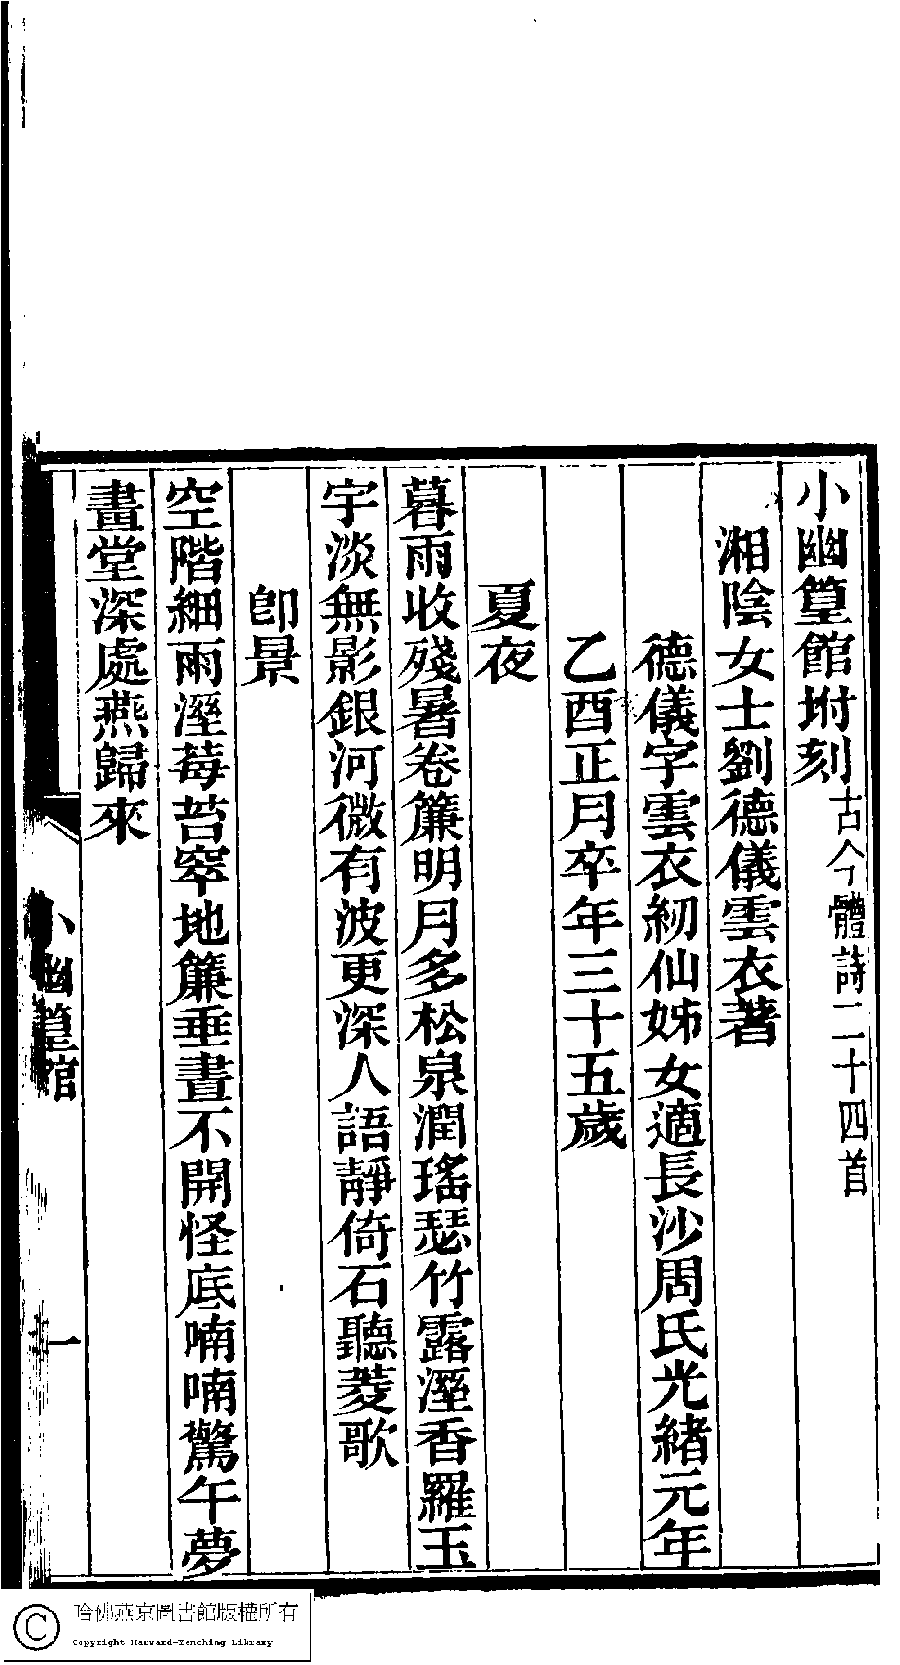 小幽篁館坿刻古今體詩二十四首
湘陰女士劉德儀雲衣著
德儀字雲衣紉仙姊女適長沙周氏光緒元年
乙酉正月卒年三十五歲
夏夜
暮雨收殘暑卷簾明月多松泉潤瑤瑟竹露溼香羅玉
宇淡無影銀河微有波更深人語靜倚石聽菱歌
卽景
空階細雨溼莓苔窣地簾垂晝不開怪底喃喃驚午夢
畫堂深處燕歸來
小幽篁館
一
哈佛燕京圖書館版權所有
Copyright Harvard-Yenching Library